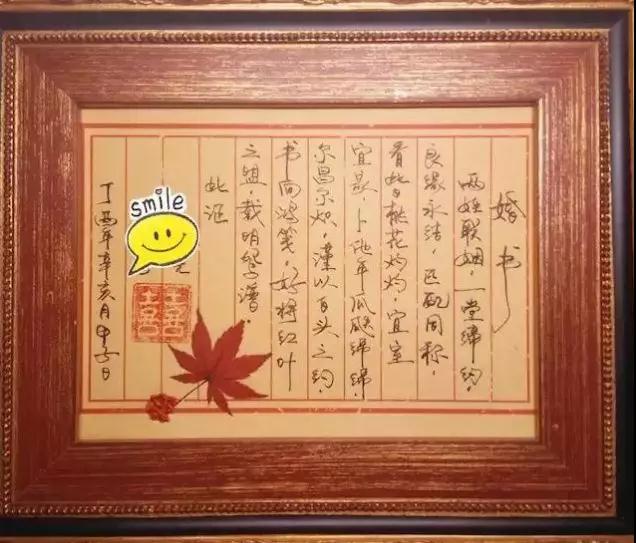 婚书
两姓联姻，一堂缔约，
良缘永结，匹配同称，
看此日桃花灼灼，宜室
宜家，卜他年瓜瓞绵绵，
尔昌尔炽，谨以白头之约，
书向鸿笺，好将红叶
之盟，载明鸳谱。
此证
smile
丁酉年辛亥月甲子日